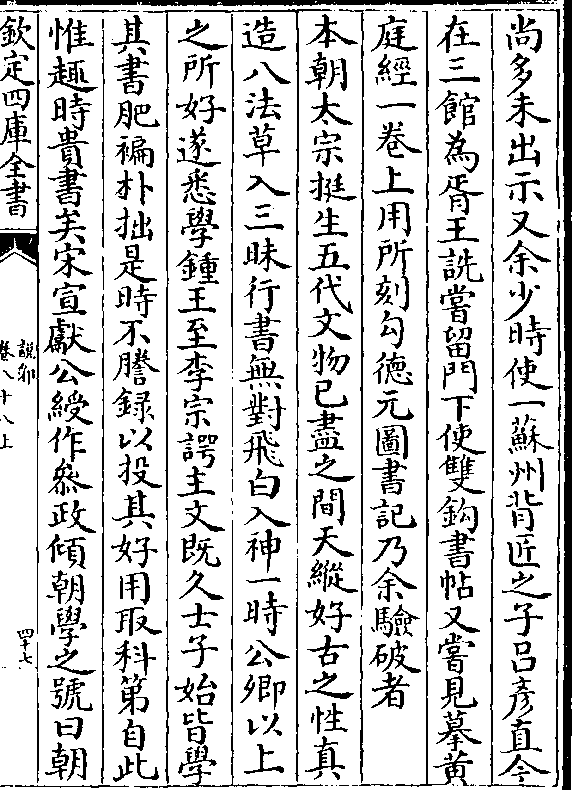 尚多未出示又余少時使一蘇州背匠之子吕彥直今
在三館為胥王詵嘗留門下使雙鈎書帖又嘗見摹黄
庭經一卷上用所刻勾德元圖書記乃余驗破者
本朝太宗挺生五代文物已盡之間天縱好古之性真
造八法草入三昧行書無對飛白入神一時公卿以上
之所好遂悉學鍾王至李宗諤主文既久士子始皆學
其書肥褊朴拙是時不謄録以投其好用取科第自此
惟趣時貴書矣宋宣獻公綬作參政傾朝學之號曰朝
欽定四庫全書
說郛
卷八十八上
四十七